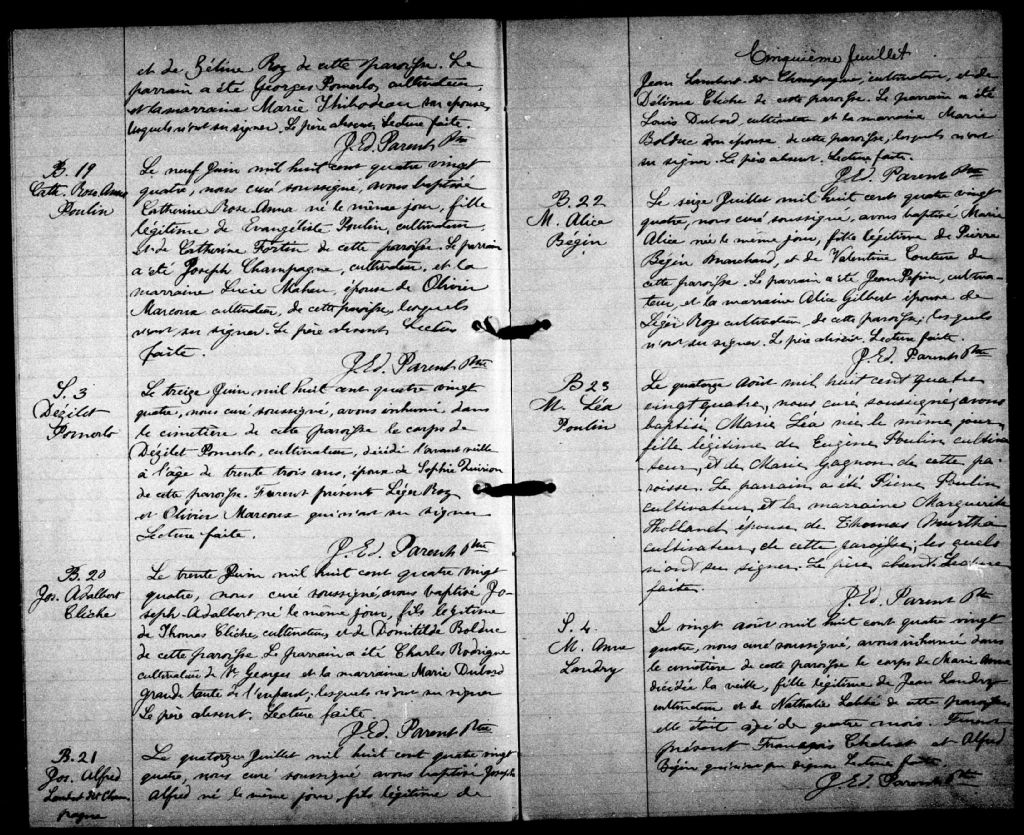 et de Zéline Roy de cette paroisse. Le
parrain a été Georges Pomerlo, cultivateur,
et la marraine Marie Thibodeau son épouse,
lesquels n'ont su signer. Le père absent. Lecture faite.
J. Ed. Parent Ptre
B. 19
Cath. Rose Anna
Poulin
Le neuf Juin mil huit cent quatre vingt
quatre, nous curé soussigné, avons baptisé
Catherine Rose Anna né le même jour, fille
légitime de Evangéliste Poulin, cultivateur
et de Catherine Fortin de cette paroisse. Le parrain
a été Joseph Champagne, cultivateur, et la
marraine Lucie Maheu, épouse de Olivier
Marcoux cultivateur, de cette paroisse, lesquels
n'ont su signer. Le père absent Lecture
faite.
J. Ed. Parent Ptre
S. 3
Dézilet
Pomerlo
Le treize Juin mil huit cent quatre vingt
quatre, nous curé soussigné, avons inhumé dans
le cimetière de cette paroisse le corps de
Dézilet Pomerlo, cultivateur, décédé l'avant veille
à l'âge de trente trois ans, époux de Sophie Quirion
de cette paroisse. Furent présents Léger Roy
et Olivier Marcoux qui n'ont su signer
Lecture faite.
J. Ed. Parent Ptre
B. 20
Jos. Adalbert
Cliche
Le trente Juin mil huit cent quatre vingt
quatre, nous curé soussigné, avons baptisé Jo-
seph Adalbert né le même jour, fils légitime
de Thomas Cliche, cultivateur, et de Domitilde Bolduc
de cette paroisse Le parrain a été Charles Rodrigue
cultivateur de St Georges et la marraine Marie
grande tante de l'enfant; lesquels n'ont su signer
Le père absent. Lecture faite
J. Ed. Parent Ptre
B. 21
Jos. Alfred
Lambert dit Cham
pagne
Le quatorze Juillet mil huit cent quatre vingt
quatre, nous curé soussigné avons baptisé Joseph
Alfred né le même jour, fils légitime de
Cinquième feuillet
Jean Lambert dit Champagne, cultivateur, et de
Délima Cliche de cette paroisse. Le parrain a été
Louis cultivateur et la marraine Marie
Bolduc son épouse de cette paroisse; lesquels n'ont
su signer. Le père absent. Lecture faite.
J. Ed. Parent Ptre
B. 22
M. Alice
Begin
Le seize Juillet mil huit cent quatre vingt
quatre, nous curé soussigné, avons baptisé Marie
Alice née le même jour, fille légitime de Pierre
Bégin Marchand, et de Valentine Couture de
cette paroisse. Le parrain a été Jean Pepin, cultiva-
teur, et la marraine Alice Gilbert épouse de
Léger Roy cultivateur, de cette paroisse; lesquels
n'ont su signer. Le père absent. Lecture faite.
J. Ed. Parent Ptre
B 23
M. Léa
Poulin
Le quatorze Août mil huit cent quatre
vingt quatre, nous curé soussigné, avons
baptisé Marie Léa née le même jour,
fille légitime de Eugène Poulin cultiva
teur, et de Marie Gagnon de cette pa-
roisse. Le parrain a été Pierre Poulin
cultivateur, et la marraine Marguerite
Holland épouse de Thomas Murtha
cultivateur, de cette paroisse; lesquels
n'ont su signer. Le père absent. Lecture
faite.
J. Ed. Parent Ptre
S. 4
M. Anna
Landry
Le vingt août mil huit cent quatre vingt
quatre, nous curé soussigné, avons inhumé dans
le cimetière de cette paroisse le corps de Marie Anna
décédée la veille, fille légitime de Jean Landry
cultivateur et de Nathalie Labbé de cette paroisse
elle était agée de quatre mois. Furent
présent François et Alfred
Bégin qui n'ont pu signer Lecture faite.
J. Ed. Parent Ptre